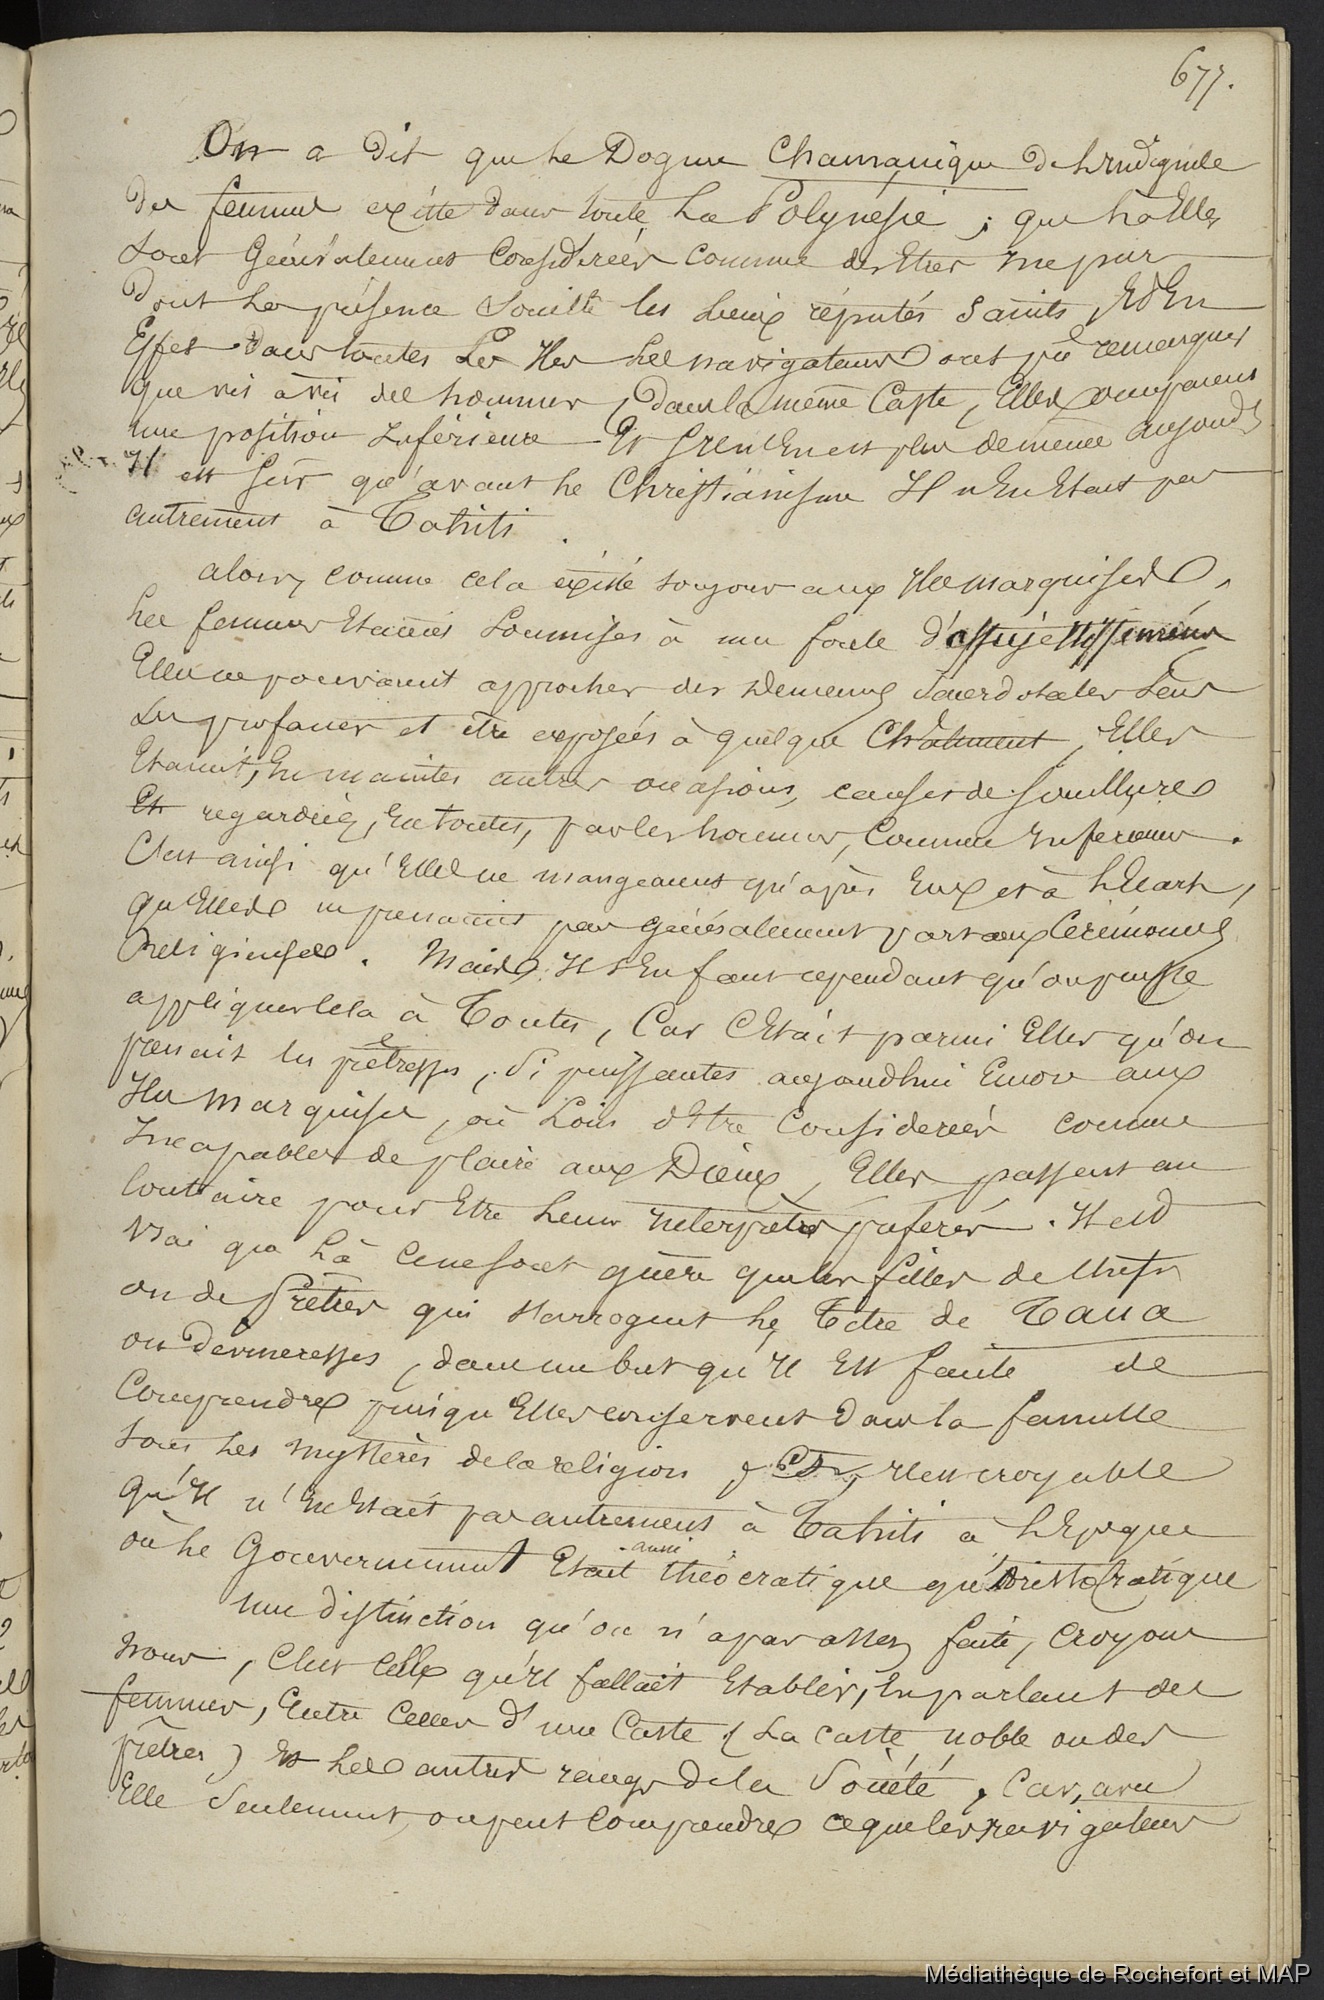 677.
On a dit que le Dogme Chamanique de l'indignité
des femmes existe dans toute la Polynésie ; que là Elles
sont Généralement Considérées comme des Etres impurs
dont la présence souille les lieux réputés Saints, Et En
Effet dans toutes les Iles les navigateurs ont pu remarquer
que vis à vis des hommes, dans la même Caste, Elles occupaient
une position Inférieure Et s'il n'En est plus de même aujourd'h
Il est sûr qu'avant le Christianisme Il n'En Etait pas
autrement à Tahiti.
alors, comme cela existe toujours aux Iles marquises,
les femmes Etaient Soumises à une foule d'assujettissements
Elles ne pouvaient approcher des Demeures Sacerdotales sans
les profaner et être exposées à quelque Châtiment, Elles
Etaient, En maintes autres occasions, causes de souillures
Et regardées, En toutes, par les hommes, Comme Inférieures.
C'est ainsi qu'Elles ne mangeaient qu'après Eux et à l'Ecart,
qu'Elles ne prenaient pas généralement part aux Cérémonies
Religieuses. Mais Il s'En faut cependant qu'on puisse
appliquer Cela à Toutes, Car C'Etait parmi Elles qu'on
prenait les prêtresses, si puissantes aujourdhui Encor aux
Iles Marquises, où Loin d'Etre Considérées comme
Incapables de plaire aux Dieux, Elles passent au
Contraire pour Etre leurs Interprètes préférés. Il est
vrai que là Ce ne sont guère que les filles de Chefs
ou de Prêtres qui s'arrogent le Titre de Taua
ou Devineresses, dans un but qu'Il Est facile de
Comprendre puisqu'Elles conservent dans la famille
tous les mystères de la religion, Et, Il est croyable
qu'Il n'En Etait pas autrement à Tahiti à l'Epoque
où le Gouvernement Etait aussi théocratique qu'Aristocratique
Une distinction qu'on n'a pas assez faite, croyons
nous, C'est Celle qu'Il fallait Etablir, En parlant des
femmes, Entre Celles d'une Caste (La caste noble ou des
prêtres) Et les autres rangs de la Société, Car, avec
Elle Seulement, on peut Comprendre ce que les navigateurs
Médiathèque de Rochefort et MAP